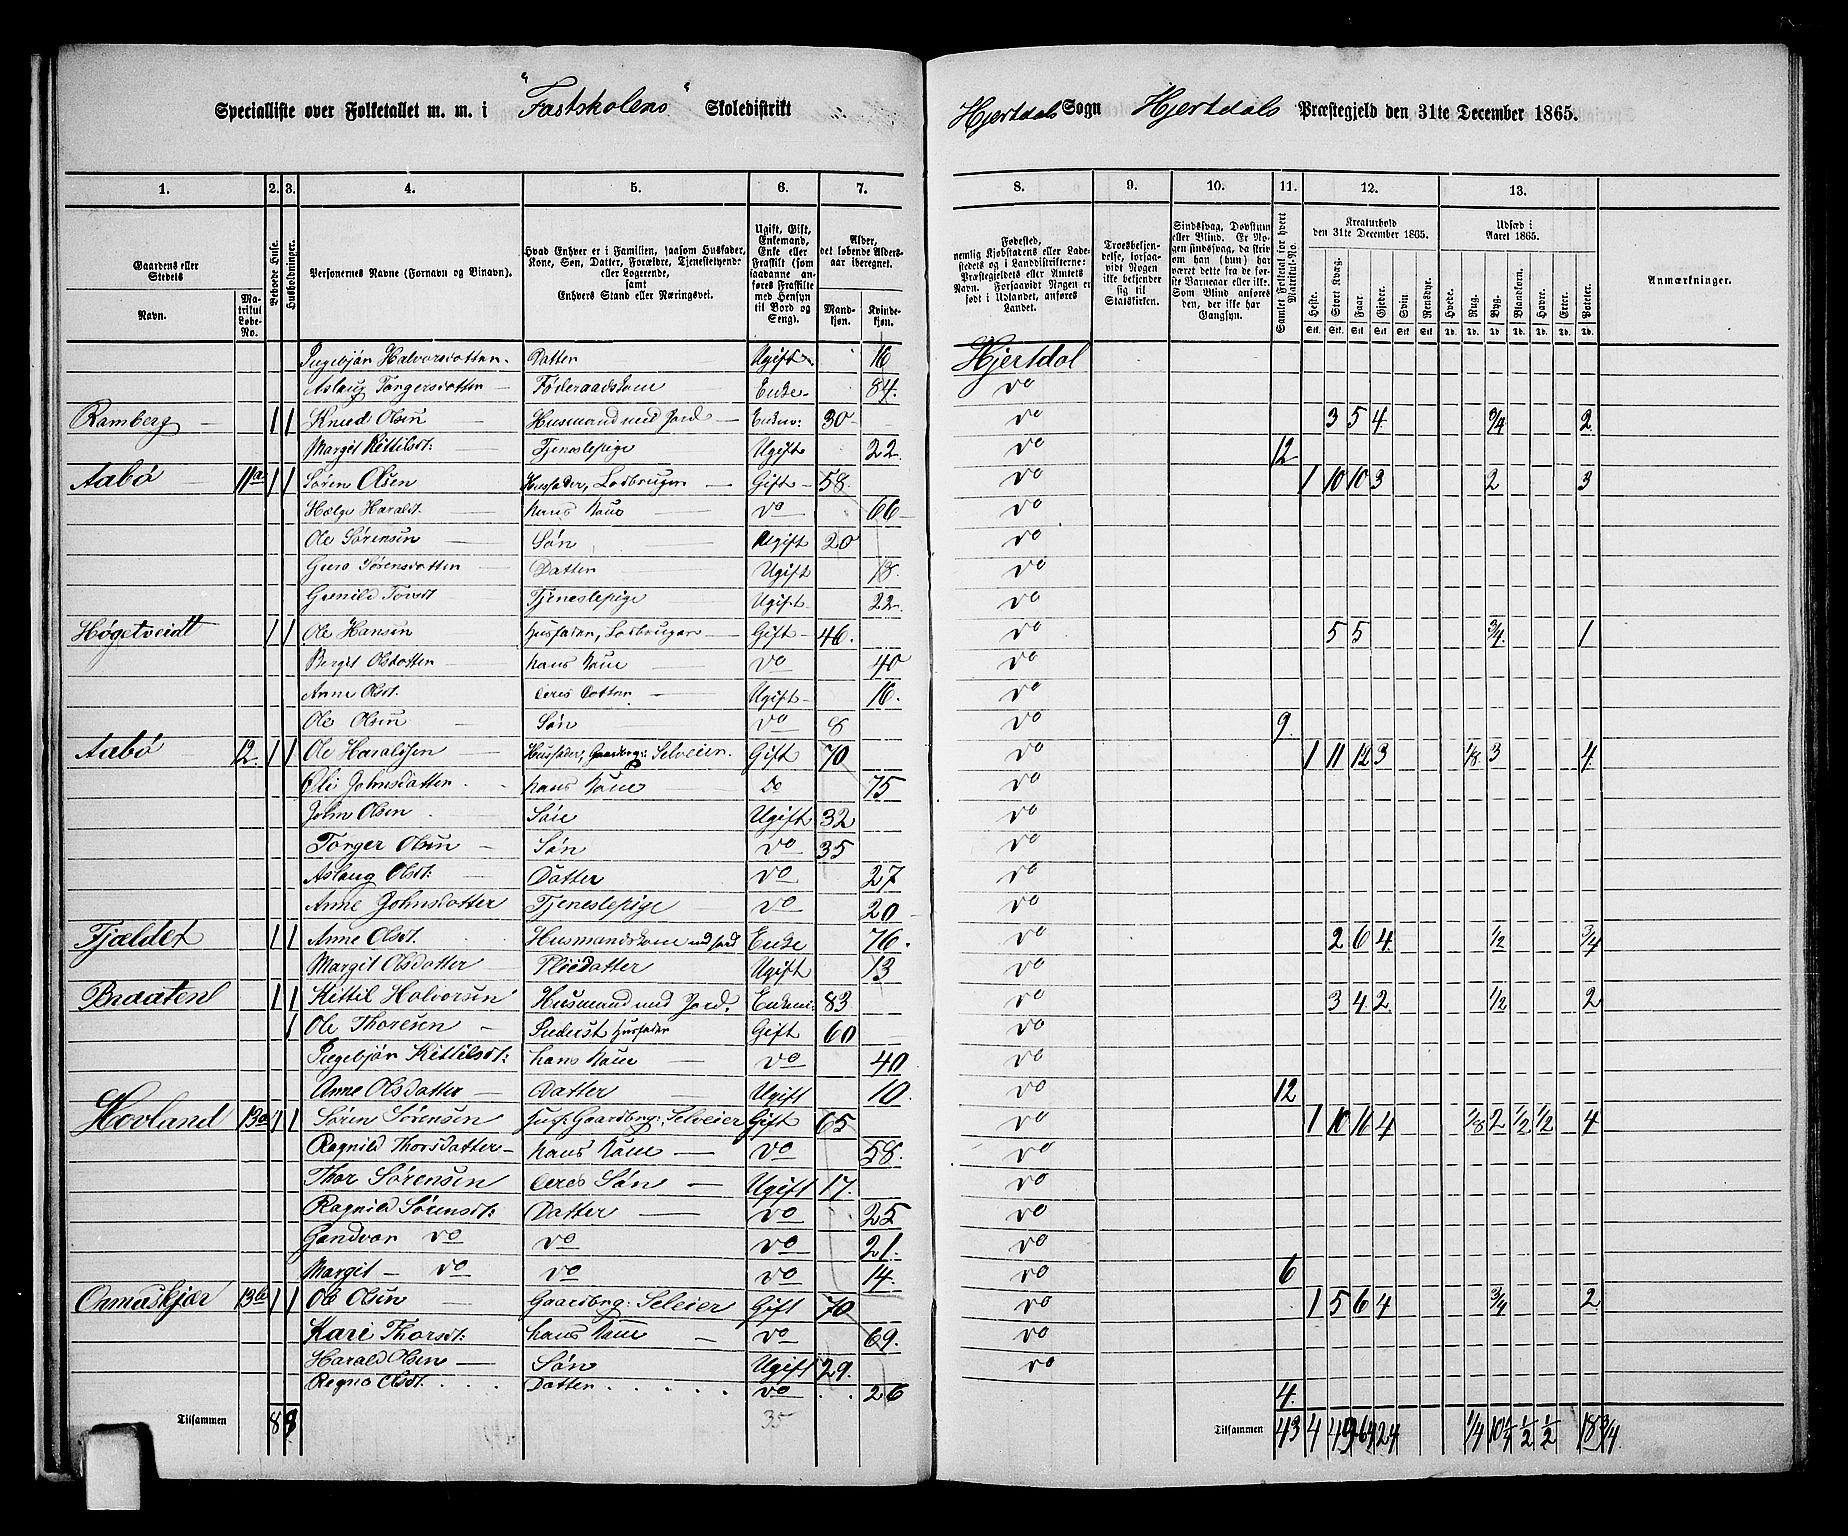 Specialliste over Folketallet m. m. i "Fastskolens" Skoledistrikt Hjertdals Sogn Hjertdals Præstegjeld den 31te December 1865.
1. 2. 3. 4. 5. 6. 7. 8. 9. 10. 11. 12. 13.
Gaardens eller Stedets
Navn. Matrikul Løbe-No.
Beboede Huse.
Husholdninger.
Personernes Navne (Fornavn og Vinavn).
Hvad Enhver er i Familien, saasom Husfader, Kone, Søn, Datter, Forældre, Tjenestetyende eller Logerende, samt Enhvers Stand eller Næringsvei.
Ugift, Gift, Enkemand, Enke eller Fraskilt (som saadanne anføres Fraskilte med Hensyn til Bord og Seng).
Alder, det løbende Aldersaar iberegnet.
Mandkjøn. Kvindekjøn.
Fødested, nemlig Kjøbstadens eller Ladestedets og i Landdistrikterne: Præstegjeldets eller Amtets Navn. Forsaavidt Nogen er født i Udlandet, anføres Landet.
Troesbekjendelse, forsaavidt Nogen ikke bekjender sig til Statskirken.
Sindssvag, Døvstum eller Blind. Er Nogen sindssvag, da skriv om han (hun) har været dette fra de første Barneaar eller ikke. Som Blind anføres den, der ikke har Gangsyn.
Samlet Folketal for hvert Matrikul-No.
Kreaturhold den 31te December 1865.
Heste. Stort Kvæg. Faar. Gjeder. Svin. Rensdyr.
Udsæd i Aaret 1865.
Hvede. Rug. Byg. Blandkorn. Havre. Erter. Poteter.
Anmærkninger.
Ingebjør Halvorsdotter Datter Ugift 16 Hjertdal
Aslaug Torgersdotter Føderaadskone Enke 84. do
Ramberg 1 1 Knud Olsen Husmand med Jord Enkem: 30 do 3 5 4 3/4 2
Margit Kittilsdt: Tjenestepige Ugift 22 do 12
Aabø 11a 1 1 Søren Olsen Husfader, Lodbruger Gift 58 do 1 10 10 3 2 3
Helge Haraldt hans Kone do 66 do
Ole Sørensen Søn Ugift 20 do
Guro Sørensdotter Datter Ugift 18. do
Gunild Tovsdt Tjenestepige Ugift 22 do
Høgetveidt 1 1 Ole Hansen Husfader, Lodbruger Gift 46. do 5 5 3/4 1
Bergit Olsdotter hans Kone do 40 do
Anne Olsdt: deres Dotter Ugift 16. do
Ole Olsen Søn do 8 do 9.
Aabø 12. 1 1 Ole Haraldsen Husfader, Gaardbrg: Selveier. Gift 70 do 1 11 12 3 1/8 3 4.
Johnsdatter hans Kone do 75 do
John Olsen Søn Ugift 32 do
Torger Olsen Søn do 35 do
Aslaug Olsdt: Datter do 27 do
Anne Johnsdatter Tjenestepige do 20 do
Fjældet 1 1 Anne Olsdt. Husmandskone med Jord Enke 76. do 2 6 4 1/2 3/4
Margit Olsdatter Pleiedatter Ugift 13 do
Braaten 1 1 Kittil Halvorsen Husmand med Jord. Enkem: 83 do 3 4 2. 1/2 2
1 Ole Thoresen Inderst Husfader Gift 60 do
Ingebjør Kittilsdt: hans Kone do 40 do
Anne Olsdatter Datter Ugift 10. do 12
Hovland 13a 1 1 Søren Sørensen Husf. Gaardbrg: Selveier Gift 65 do 1 10 16 4 1/8 2 1/2 1/2 4
Ragnild Thorsdatter hans Kone do 58. do
Thor Sørensen deres Søn Ugift 17. do
Ragnild Sørensdt: Datter do 25 do
Gundvor do do do 21. do
Margit do do do 14. do 6
13b 1 1 Ole Olsen Gaardbrg: Seleier Gift 70 do 1 5 6 4 3/4 2
Kari Thorsdt: hans Kone do 69. do
Harald Olsen Søn Ugift 29. do
Datter do 26 4.
Tilsammen 8 35 Tilsammen 43 4 49 64 24 1/4 10 1/2 1/2 18 3/4